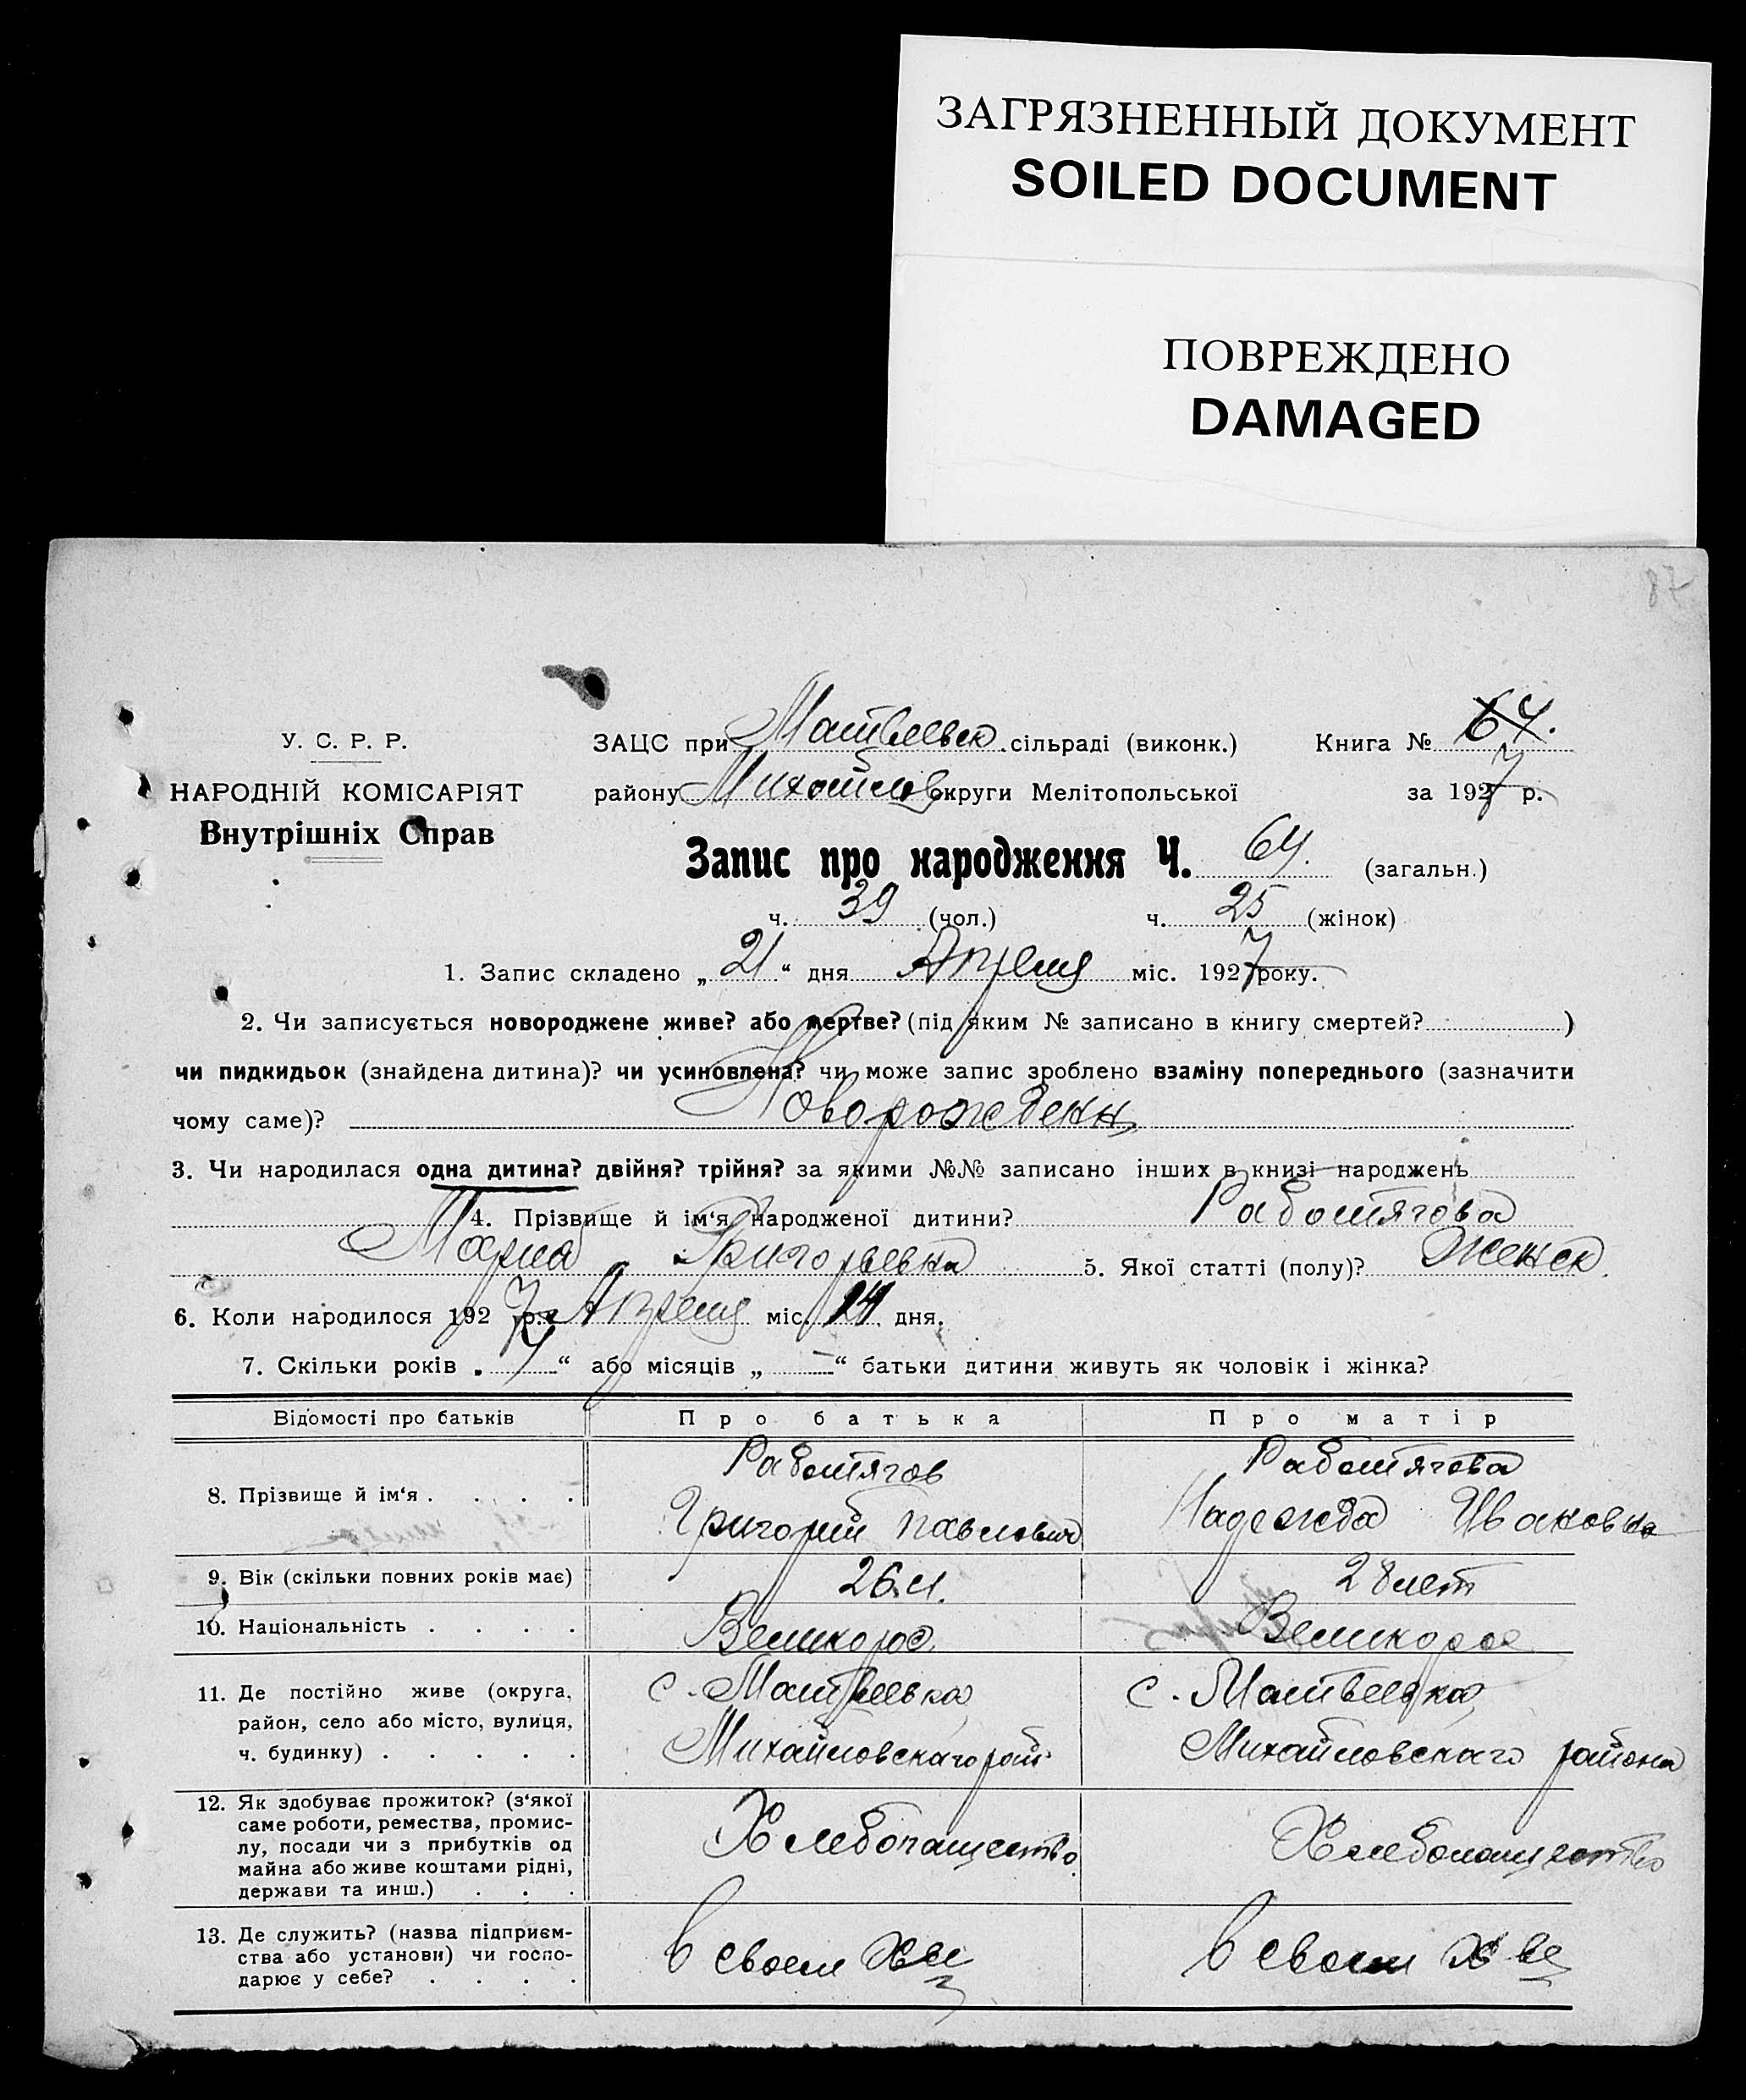 ЗАГРЯЗНЕННЫЙ ДОКУМЕНТ
SOILED DOCUMENT
ПОВРЕЖДЕНО
DAMAGED
87
У. С. Р. Р.
НАРОДНІЙ КОМІСАРІЯТ
Внутрішніх Справ
ЗАЦС при Матвеевск сільраді (виконк.) Книга № 64.
району Михайлов округи Мелітопольської за 1927 р.
Запис про народження Ч. 64. (загальн.)
ч. 39 (чол.) ч. 25 (жінок)
1. Запис складено „ 21 “ дня Апреля міс. 1927 року.
2. Чи записується новороджене живе? або мертве? (під яким № записано в книгу смертей? )
чи пидкидьок (знайдена дитина)? чи усиновлена? чи може запис зроблено взаміну попереднього (зазначити
чому саме)? Новорожденн
3. Чи народилася одна дитина? двійня? трійня? за якими №№ записано інших в книзі народжень
4. Прізвище й ім‘я народженої дитини? Работягова
Мария Григорьевна 5. Якої статті (полу)? Женск.
6. Коли народилося 1927 р. Апреля міс. 14 дня.
7. Скільки років „ 4 “ або місяців „ — “ батьки дитини живуть як чоловік і жінка?
Відомості про батьків Про батька Про матір
8. Прізвище й ім‘я . . . .
Работягов
Григорий Павлович
Работягова
Надежда Ивановна
9. Вік (скільки повних років має) 26 л. 28 лет
10. Національність . . . . Великорос Великорос
11. Де постійно живе (округа,
район, село або місто, вулиця,
ч. будинку) . . . . .
с. Матвеевка
Михайловскаго рай
с. Матвеевка
Михайловскаго района
12. Як здобуває прожиток? (з‘якої
саме роботи, ремества, промис-
лу, посади чи з прибутків од
майна або живе коштами рідні,
держави та инш.) . . .
Хлебопащество
Хлебопащество
13. Де служить? (назва підприєм-
ства або установи) чи госпо-
дарює у себе? . . . .
В своем Хве
В своем Хве